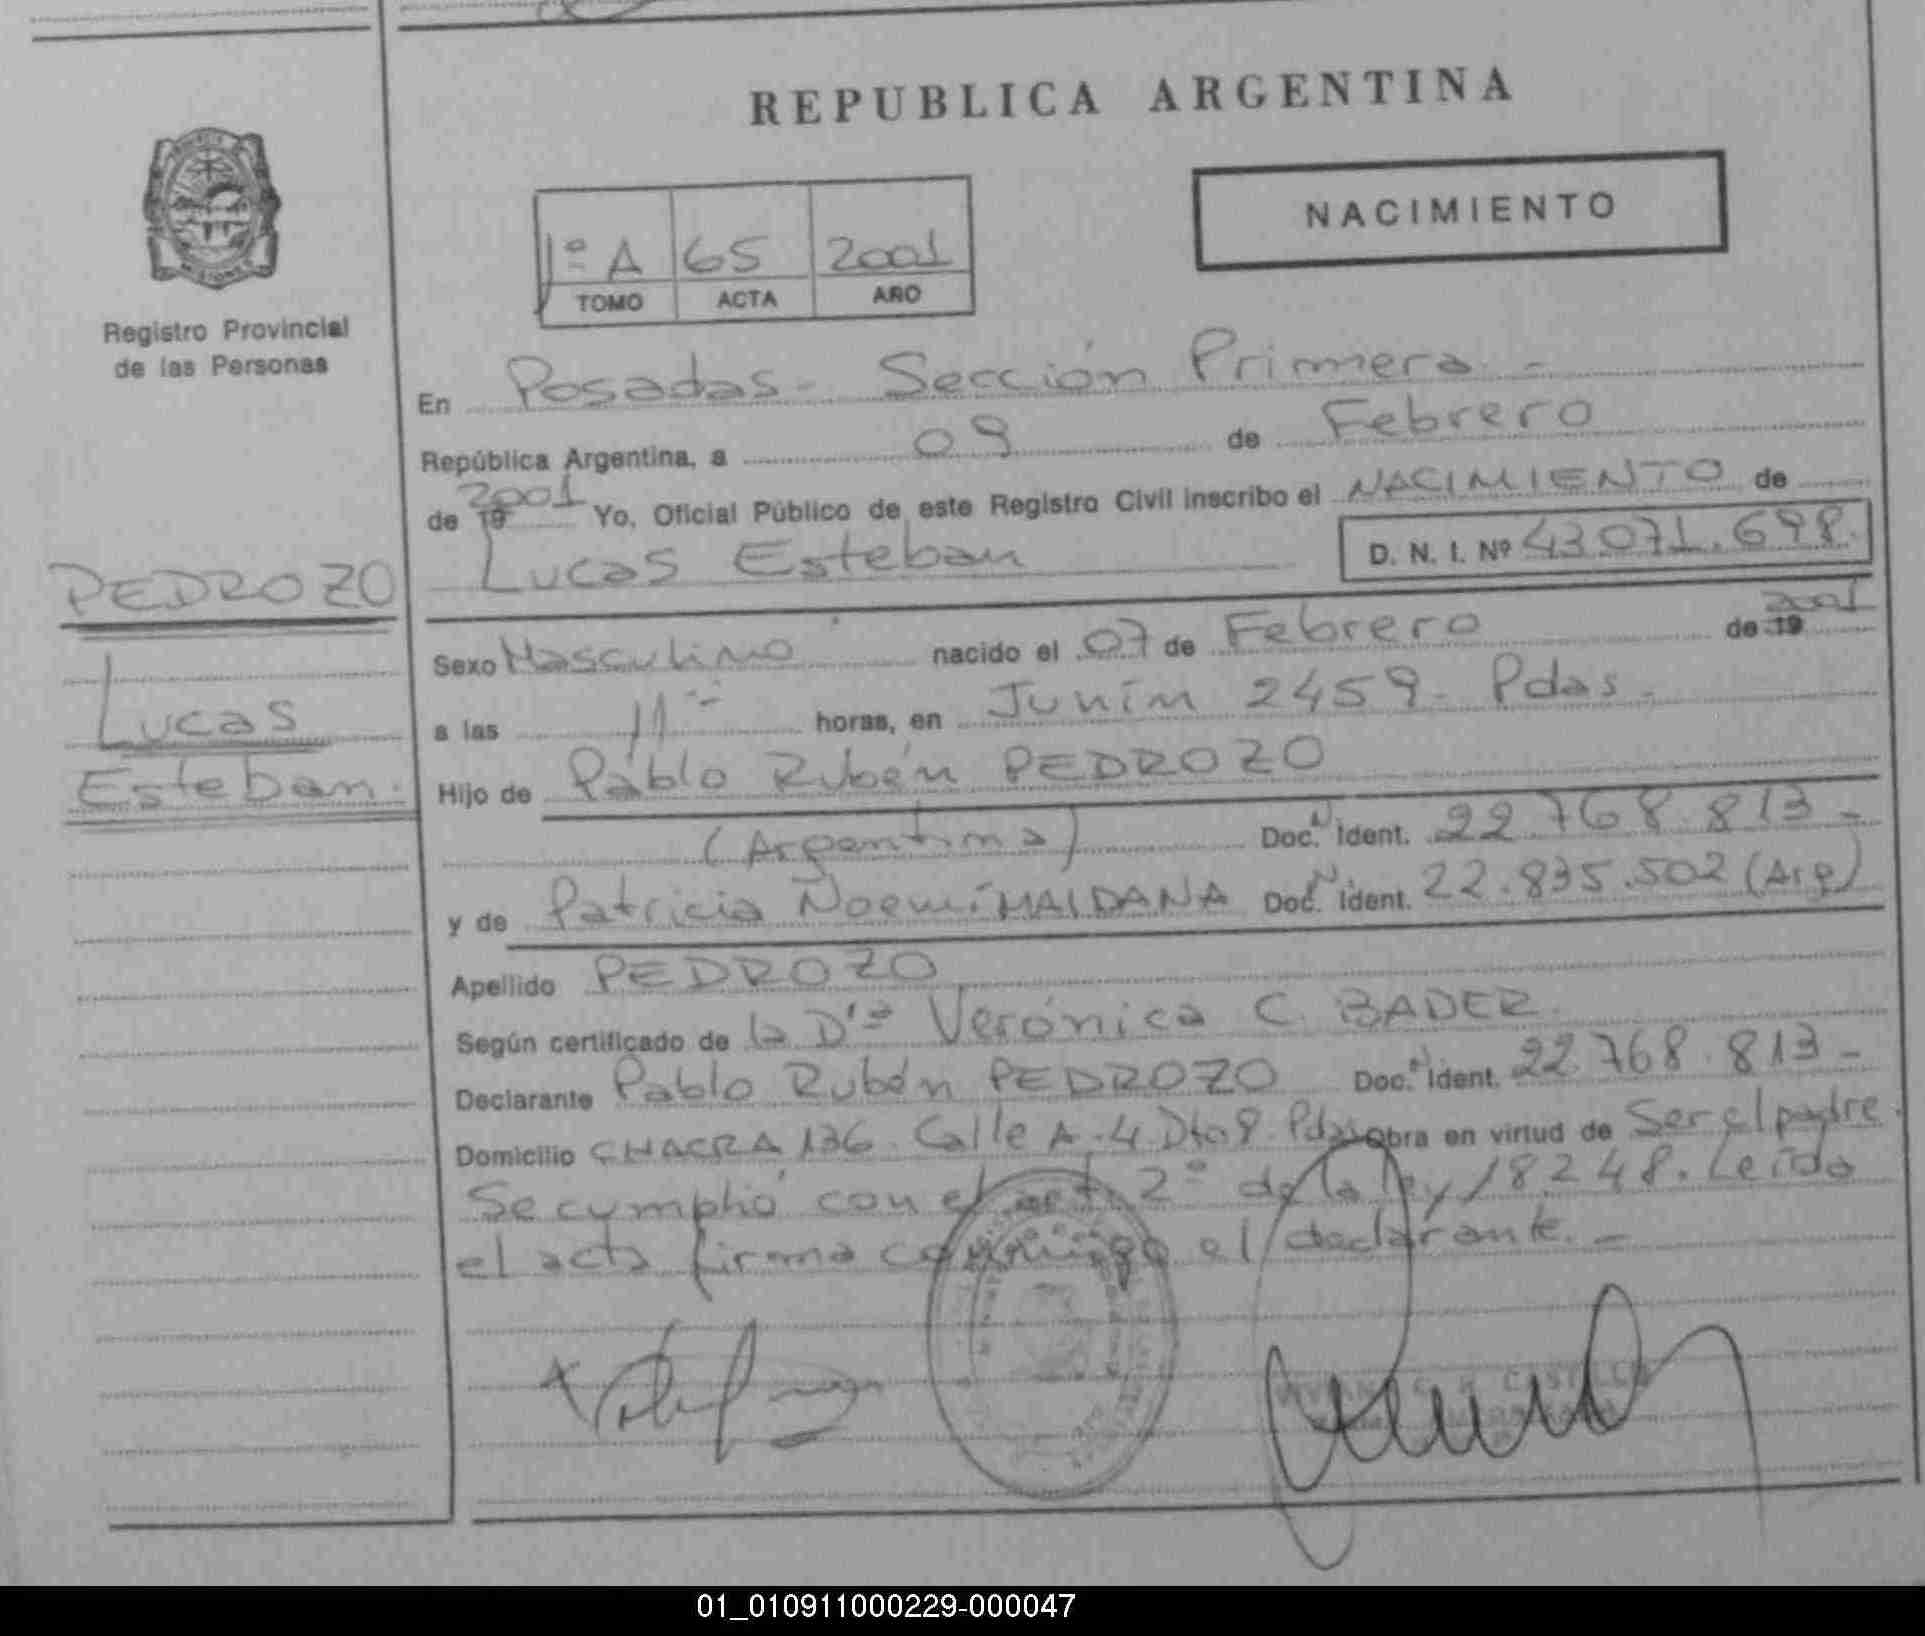 REPUBLICA ARGENTINA
NACIMIENTO
1º A 65 2001
TOMO ACTA AÑO
Registro Provincial
de las Personas
En Posadas - Sección Primera -
República Argentina, a 09 de Febrero
de 19 2001 Yo, Oficial Público de este Registro Civil inscribo el NACIMIENTO de
Lucas Esteban D. N. I. Nº 43.071.698.
PEDROZO
Lucas
Esteban.
Sexo Masculino nacido el 07 de Febrero de 19 2001
a las 11 horas, en Junín 2459 - Pdas -
Hijo de Pablo Rubén PEDROZO
(Argentina) Doc. Ident. 22.768.813 -
y de Patricia Noemí MAIDANA Doc. Ident. 22.835.502 (Arg)
Apellido PEDROZO
Según certificado de la Dra Verónica C. BADER.
Declarante Pablo Rubén PEDROZO Doc. Ident. 22.768.813 -
Domicilio CHACRA 136 - Calle A - 4 Dto 9 - Pdas Obra en virtud de Ser el padre.
Se cumplió con el art. 2º de la ley 18.248. Leída
el acta firma conmigo el declarante. -
01_010911000229-000047